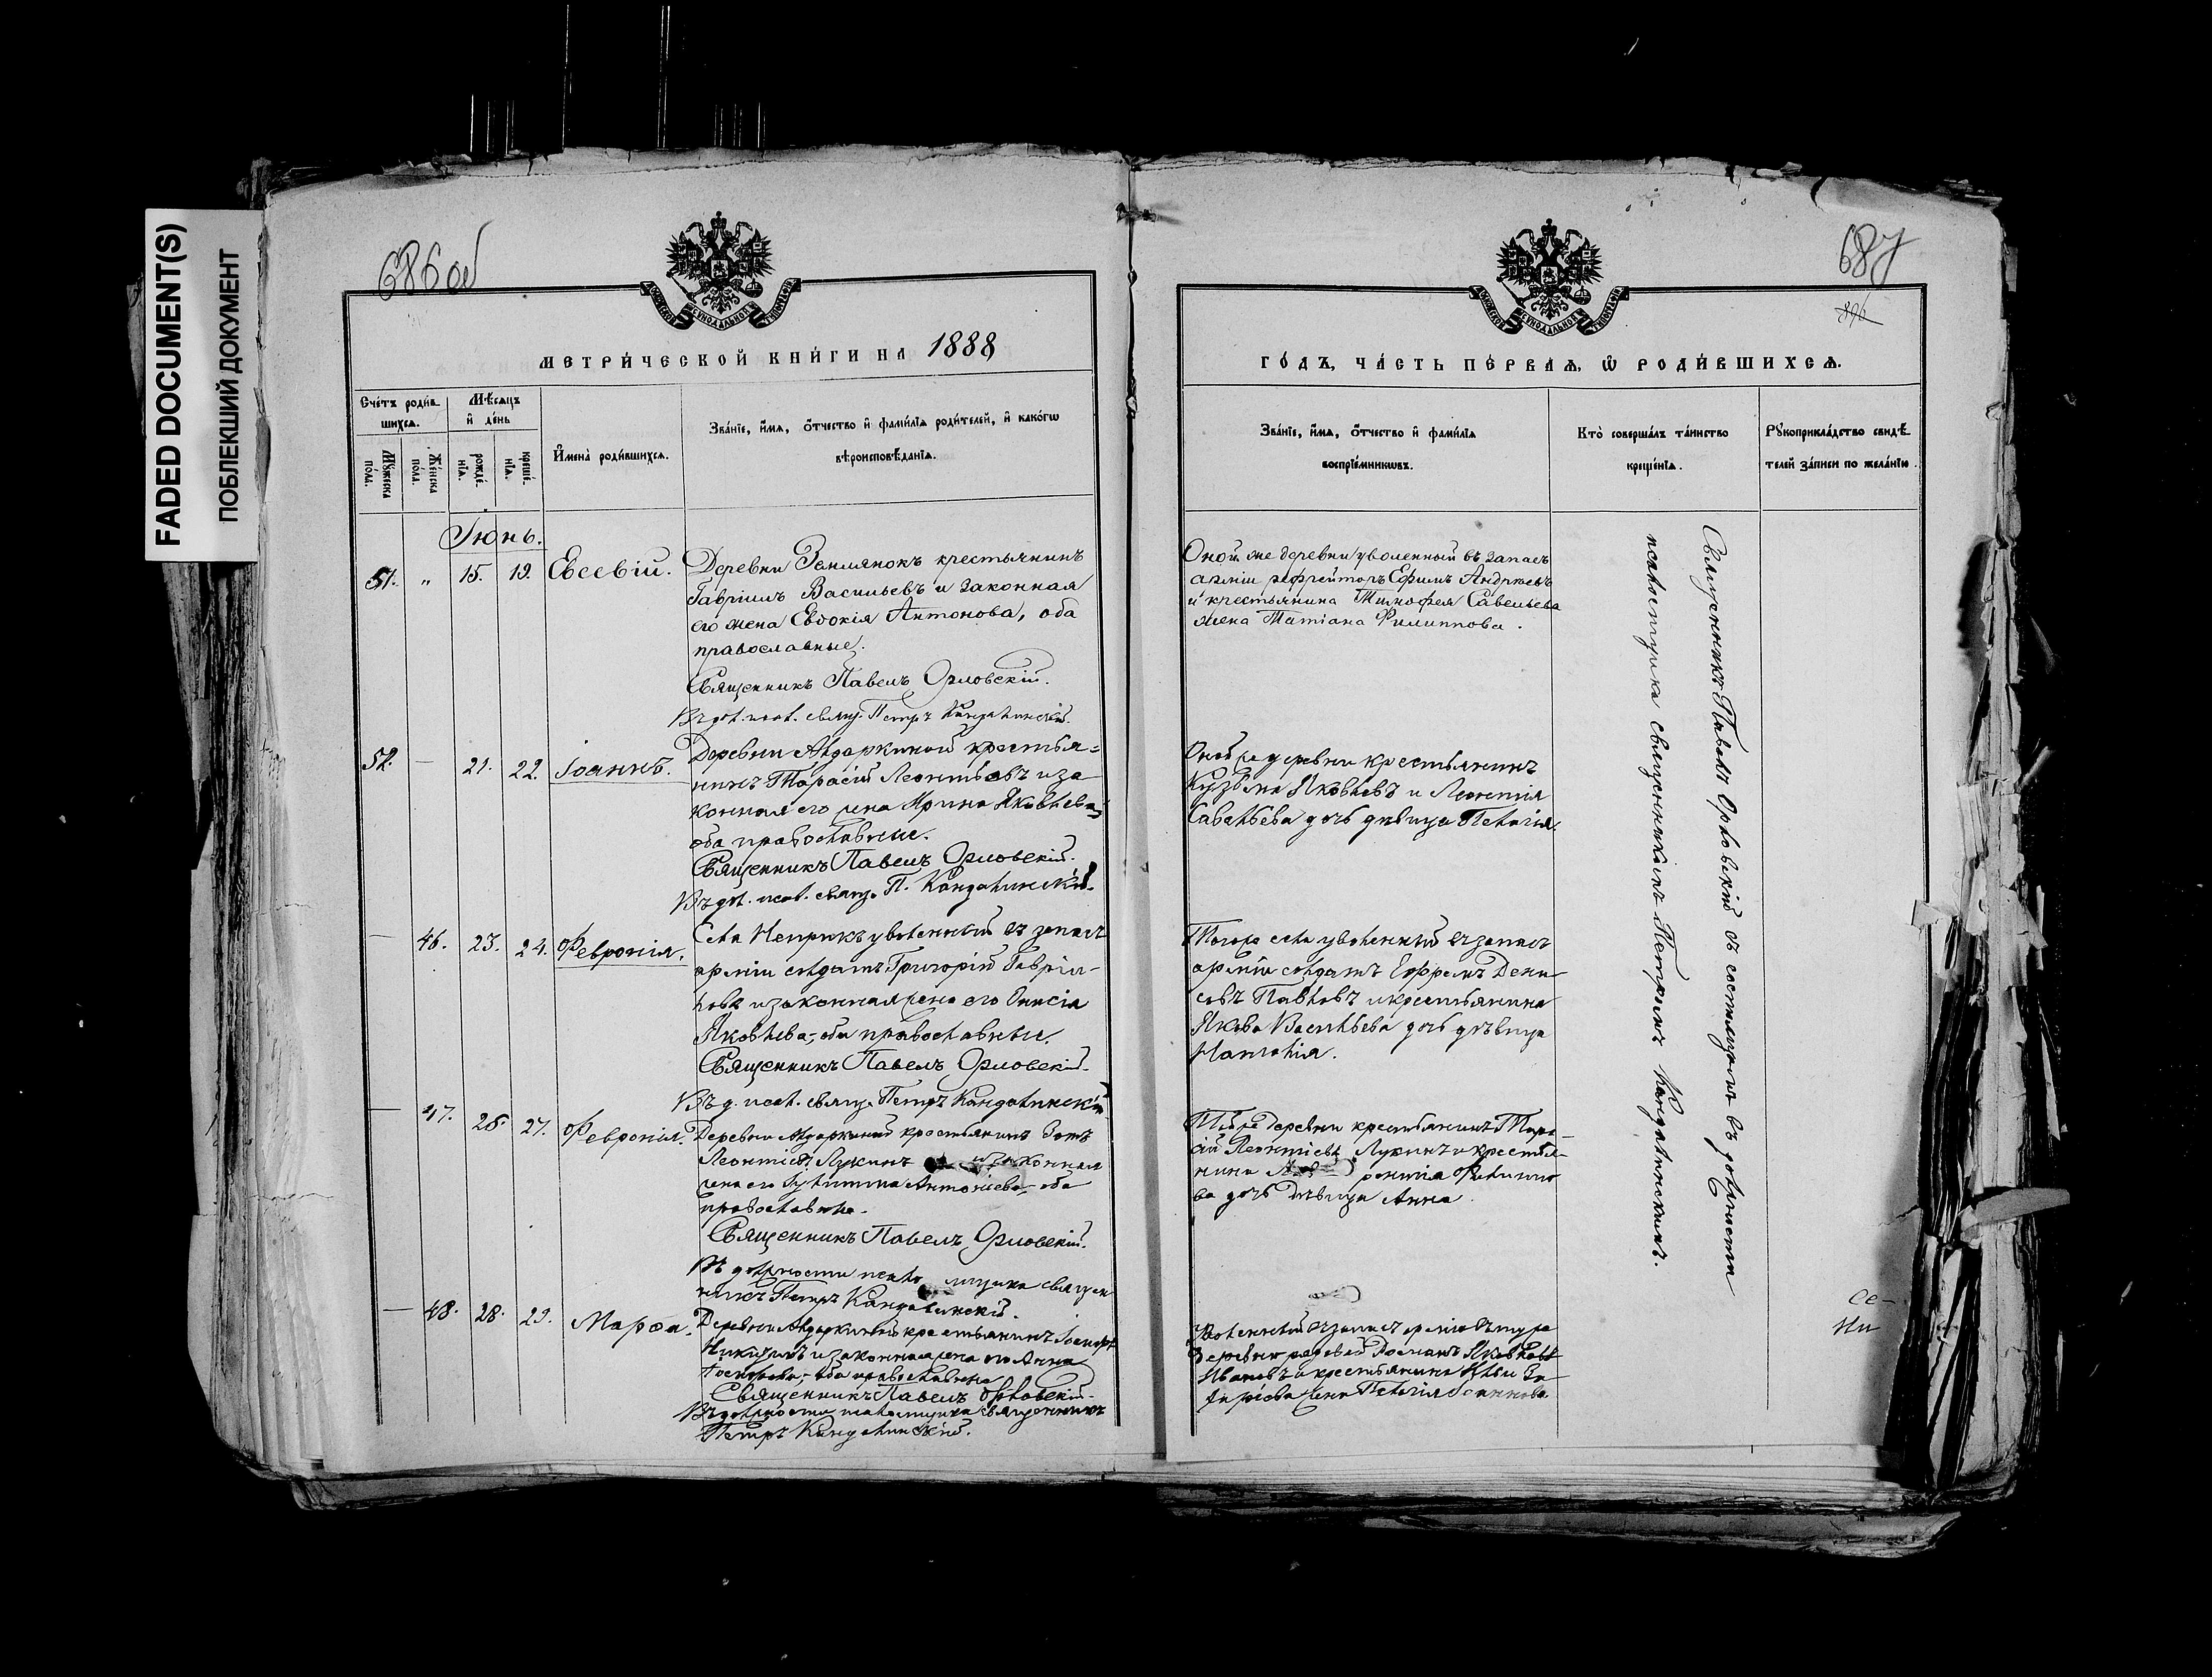 FADED DOCUMENT(S)
ПОБЛЕКШИЙ ДОКУМЕНТ
686 об
МЕТРИ́ЧЕСКОЙ КНИ́ГИ НА 1888
Сче́тъ роди́в
шихсѧ.
Мѣ́сѧцъ
и҆ де́нь
Мꙋ́жеска
по́ла.
Же́нска
по́ла.
рожде́-
нїѧ.
креще́-
нїѧ.
И҆мена̀ роди́вшихсѧ.
Зва́нїе, и҆́мѧ, ѻ҆́тчество и҆ фами́лїѧ роди́телей, и҆ како́гѡ
вѣроисповѣ́данїѧ.
Іюнь.
51. „ 15. 19. Евсевій.
Деревни Землянокъ крестьянинъ
Гавріилъ Васильевъ и законная
его жена Евдокія Антонова, оба
православные.
Священникъ Павелъ Орловскій.
Въ дол. псал. свящ. Петръ Кандалинскій.
52. — 21. 22. Іоаннъ.
Деревни Авдаркиной крестья=
нинъ Тарасій Леонтьевъ и за
конная его жена Ирина Яковлева,
оба православные.
Священникъ Павелъ Орловскій.
Въ дол. псал. свящ. П. Кандалинскій.
— 46. 23. 24. Февронія.
Села Неприкъ уволенный въ запасъ
арміи солдатъ Григорій Гаврiи-
ловъ и законная жена его Анисія
Яковлева, оба православные.
Священникъ Павелъ Орловскій.
Въ д. псал. свящ. Петръ Кандалинскій.
— 47. 26. 27. Февронія.
Деревни Авдаркиной крестьянинъ Зотъ
Леонтіевъ Лукинъ и законная
жена его Іулитта Антоніева, оба
православные.
Священникъ Павелъ Орловскій.
Въ должности псало мщика священ
никъ Петръ Кандалинскій.
— 48. 28. 29. Марѳа.
Деревни Авдаркиной крестьянинъ Іосифъ
Никитинъ и законная жена его Анна
оба православные
Священникъ Павелъ Орловскій.
Въ должности псаломщика священникъ
Петръ Кандалинскій.
687
896
ГО́ДЪ, ЧА́СТЬ ПЕ́РВАѦ, Ѡ҆ РОДИ́ВШИХСѦ.
Зва́нїе, и҆́мѧ, ѻ҆́тчество и҆ фами́лїѧ
воспрїе́мникѡвъ.
Кто̀ соверша́лъ та́инство
креще́нїѧ.
Рꙋкоприкла́дство свидѣ́-
телей за́писи по жела́нїю.
Оной же деревни уволенный въ запасъ
арміи ефрейторъ Ефимъ Андреевъ
и крестьянина Тимофея Савельева
жена Татіана Филиппова.
Оной же деревни крестьянинъ
Кузьма Яковлевъ и Леонтія
Савельева дочь дѣвица Пелагія.
Того же села уволенный въ запасъ
арміи солдатъ Ефремъ Дени-
совъ Павловъ и крестьянина
Якова Васильева дочь дѣвица
Наталія.
Той же деревни крестьянинъ Тара-
сій Леонтіевъ Лукинъ и крестья-
нина рентія Филиппо
ва дочь дѣвица Анна.
Уволенный въ запасъ арміи въ ту же
деревню рядовой Яковлевъ
Ивановъ и крестьянина Ильи За
жена Пелагія Іоаннова.
Священникъ Павелъ Орловскій съ состоящимъ въ должности
псаломщика священникомъ Петромъ Кандалинскимъ.